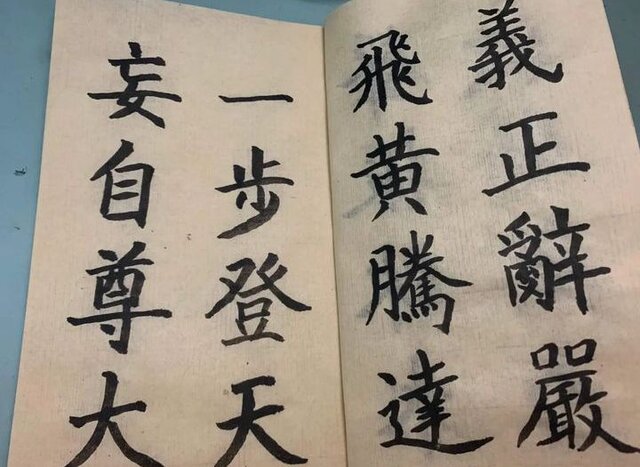 義正辭嚴
飛黃騰達
一步登天
妄自尊大